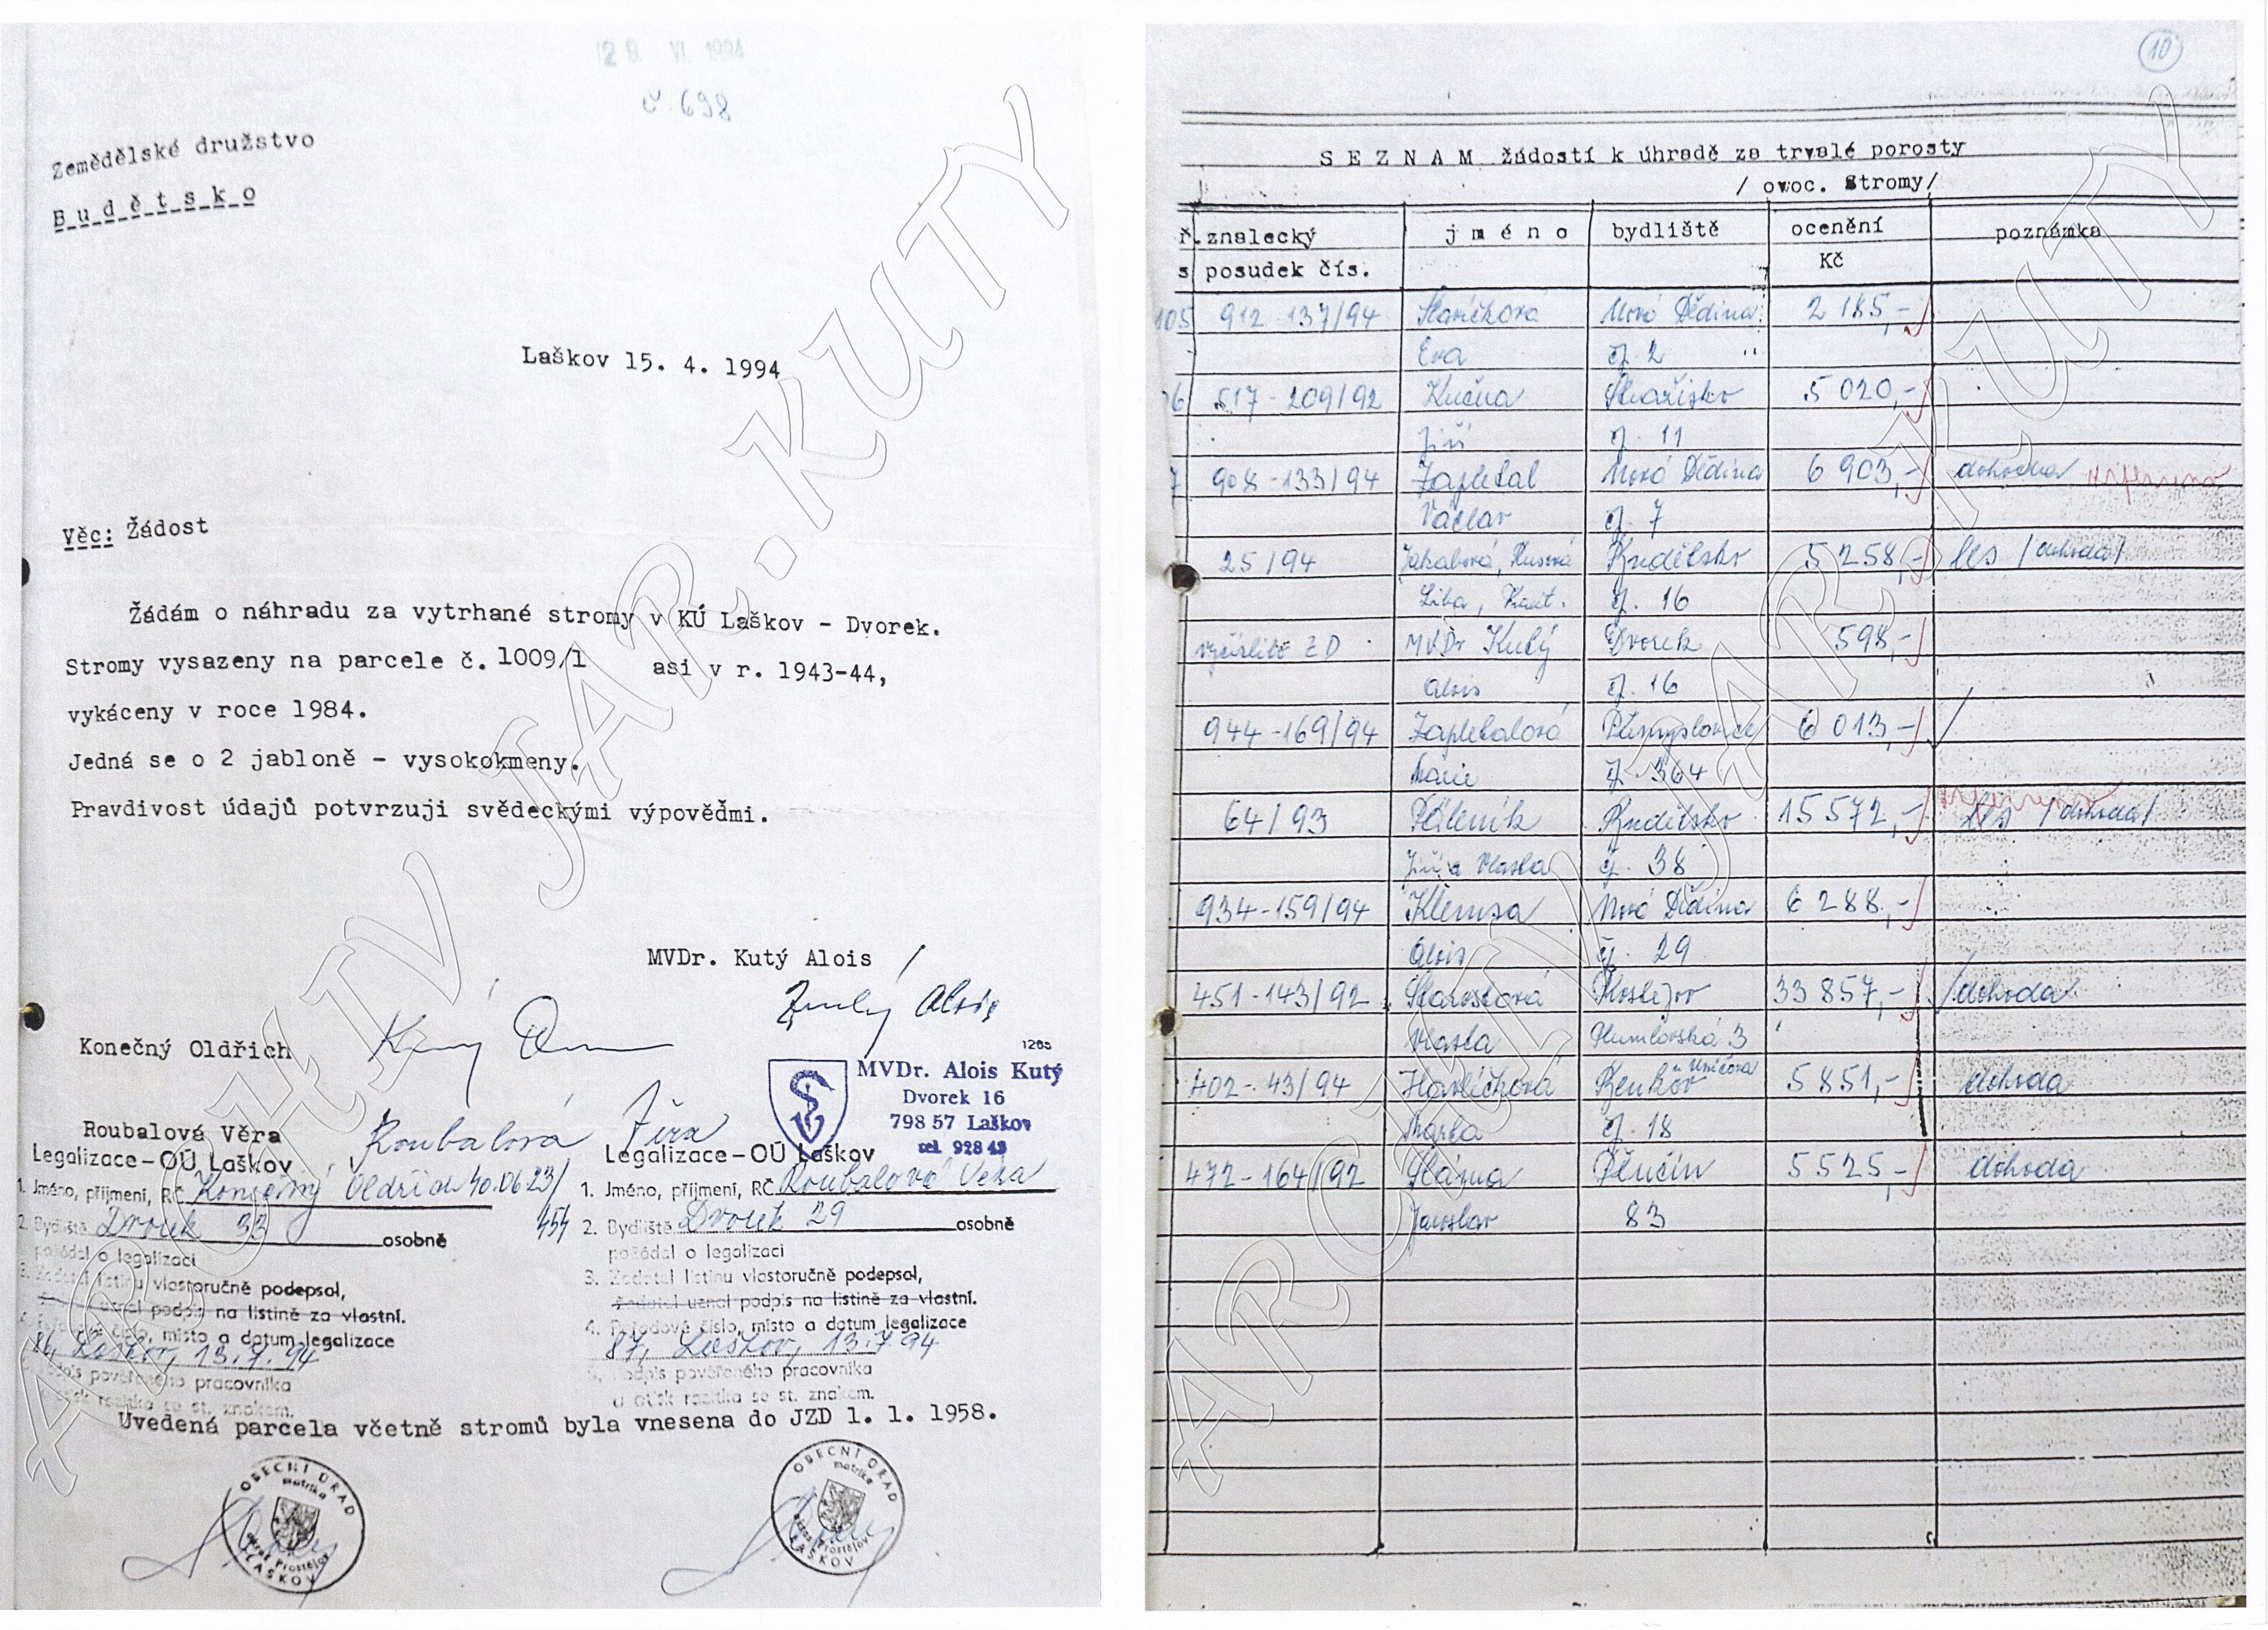 28. VI. 1994
č. 698
Zemědělské družstvo
Budětsko
Laškov 15. 4. 1994
Věc: Žádost
Žádám o náhradu za vytrhané stromy v KÚ Laškov - Dvorek.
Stromy vysazeny na parcele č. 1009/1 asi v r. 1943-44,
vykáceny v roce 1984.
Jedná se o 2 jabloně - vysokokmeny.
Pravdivost údajů potvrzuji svědeckými výpověďmi.
MVDr. Kutý Alois
Kutý Alois
Konečný Oldřich
1265
MVDr. Alois Kutý
Dvorek 16
798 57 Laškov
tel. 928 43
Roubalová Věra
Roubalová Věra
Legalizace-OÚ Laškov
1. Jméno, příjmení, RČ Konečný Oldřich 40.06 23/
454
2. Bydliště Dvorek 33 osobně
požádal o legalizaci
3. Žadatel listinu vlastoručně podepsal,
žadatel uznal podpis na listině za vlastní.
4. Pořadové číslo, místo a datum legalizace
86, Laškov, 13.7.94
5. Podpis pověřeného pracovníka
a otisk razítka se st. znakem.
Legalizace-OÚ Laškov
1. Jméno, příjmení, RČ Roubalová Věra
2. Bydliště Dvorek 29 osobně
požádal o legalizaci
3. Žadatel listinu vlastoručně podepsal,
žadatel uznal podpis na listině za vlastní.
4. Pořadové číslo, místo a datum legalizace
87, Laškov, 13.7.94
5. Podpis pověřeného pracovníka
a otisk razítka se st. znakem.
Uvedená parcela včetně stromů byla vnesena do JZD 1. 1. 1958.
OBECNÍ ÚŘAD
matrika
okres Prostějov
LAŠKOV
OBECNÍ ÚŘAD
matrika
okres Prostějov
LAŠKOV
ARCHIV JAR. KUTÝ
10
SEZNAM žádostí k úhradě za trvalé porosty
/ ovoc. Stromy/
ř. znalecký jméno bydliště ocenění poznámka
s posudek čís. Kč
105 912-137/94 Slavíčková Nová Dědina 2 185,-
Eva čj. 2
6 517-209/92 Kučna 5 020,-
Jiří čj. 11
7 908-133/94 Zapletal Nová Dědina 6 903,- dohoda
Václav čj. 7
25/94 Jakabová, Budětsko 5 258,- les /dohoda/
čj. 16
vyčíslit ZD MVDr Kutý Dvorek 598,-
Alois čj. 16
944-169/94 Zapletalová Přemyslovice 6 013,-
Marie čj. 364
64/93 Páleník Budětsko 15 572,- les /dohoda/
Jiří a Vlasta čj. 38
934-159/94 Klemsa Nová Dědina 6 288,-
Alois čj. 29
451-143/92 Starostová Prostějov 33 857,- dohoda
Vlasta Plumlovská 3
402-43/94 Havlíčková Benkov u Uničova 5 851,- dohoda
Marta čj. 18
472-164/92 Sláma Pěnčín 5 525,- dohoda
Jaroslav 83
ARCHIV JAR. KUTÝ